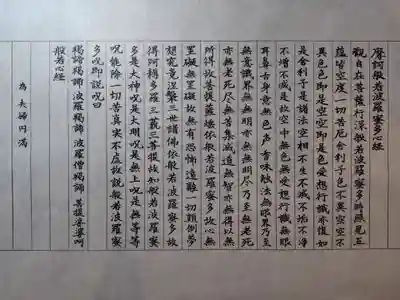 摩訶般若波羅蜜多心経
観自在菩薩行深般若波羅蜜多時照見五
蘊皆空度一切苦厄舎利子色不異空空不
異色色即是空空即是色受想行識亦復如
是舎利子是諸法空相不生不滅不垢不浄
不増不減是故空中無色無受想行識無眼
耳鼻舌身意無色声香味触法無眼界乃至
無意識界無無明亦無無明尽乃至無老死
亦無老死尽無苦集滅道無智亦無得以無
所得故菩提薩埵依般若波羅蜜多故心無
罣礙無罣礙故無有恐怖遠離一切顛倒夢
想究竟涅槃三世諸佛依般若波羅蜜多故
得阿耨多羅三藐三菩提故知般若波羅蜜
多是大神呪是大明呪是無上呪是無等等
呪能除一切苦真実不虚故説般若波羅蜜
多呪即説呪曰
羯諦羯諦 波羅羯諦 波羅僧羯諦 菩提娑婆呵
般若心経
為夫婦円満